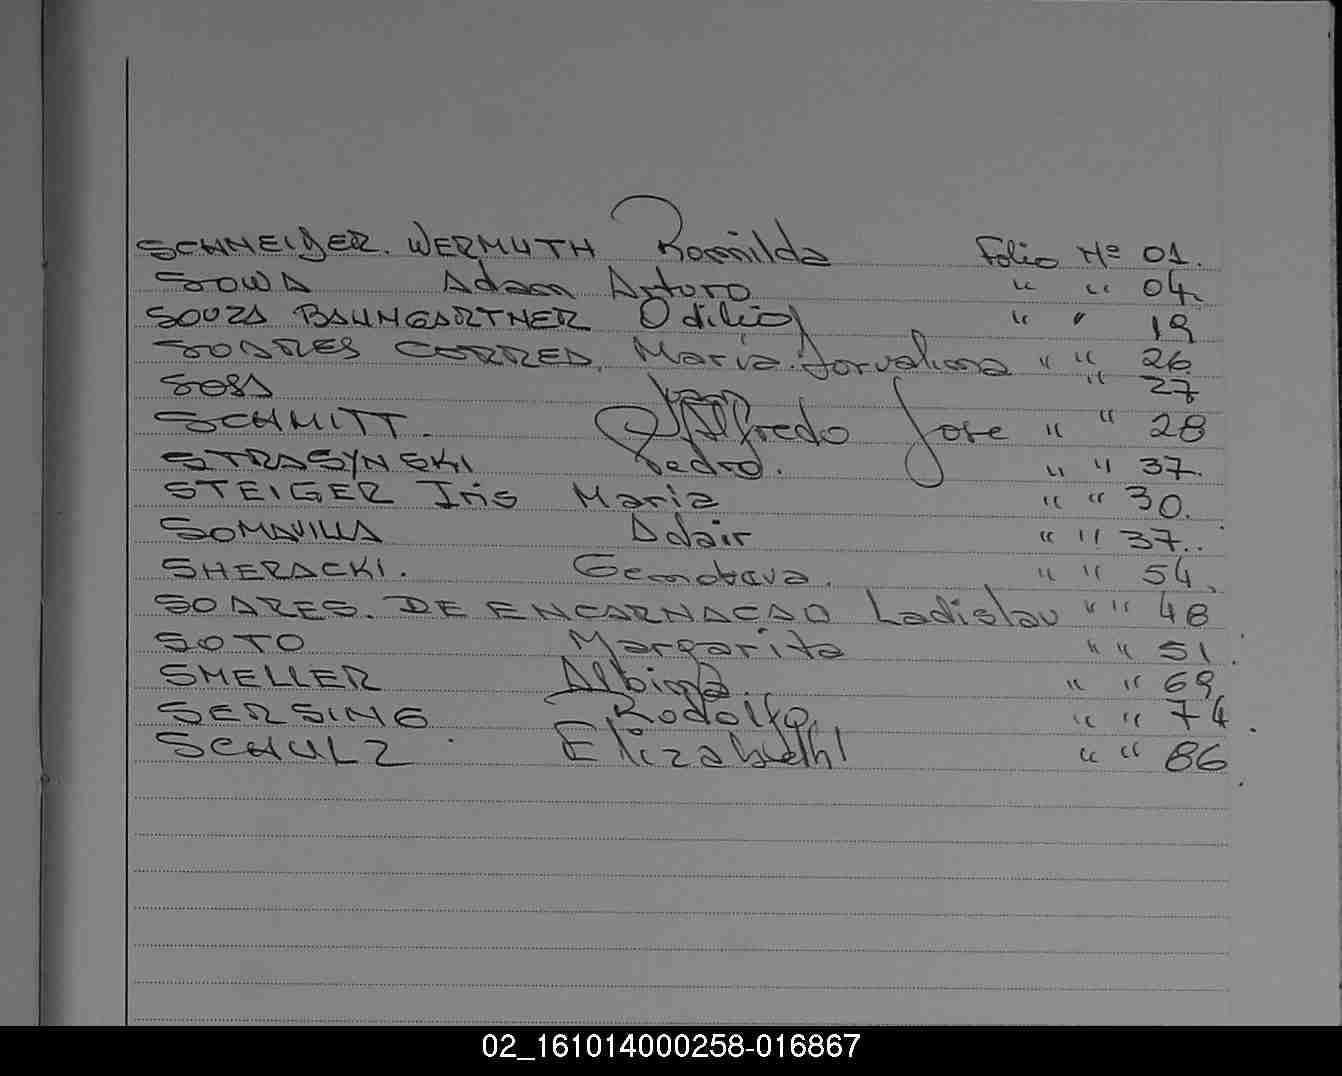 SCHNEIGER. WERMUTH Romilda Folio Nº 01.
SOWA Adam Arturo " " 04.
SOUZA BAUMGARTNER Odilio " " 19
SOARES CORREA, Maria " " 26
SOSA " 27
SCHMITT. Alfredo Jose " " 28
STRASYNSKI Pedro. " " 37.
STEIGER Iris Maria " " 30.
SOMAVILLA Adair " " 37.
SHERACKI. " " 54.
SOARES. DE ENCARNACAO Ladislau " " 48
SOTO Margarita " " 51.
SMELLER Albina. " " 69
SERSING Rodolfo. " " 74.
SCHULZ Elizabethl " " 86.
02_161014000258-016867